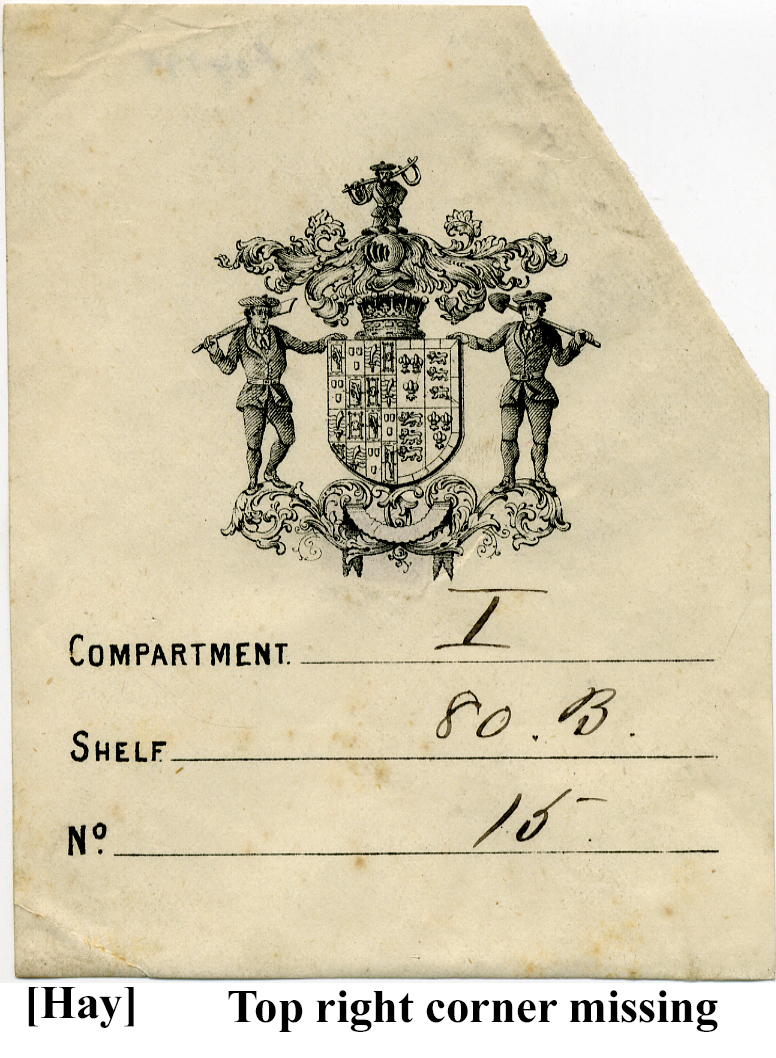 COMPARTMENT. I
SHELF. 80. B.
Nº. 15
[Hay] Top right corner missing